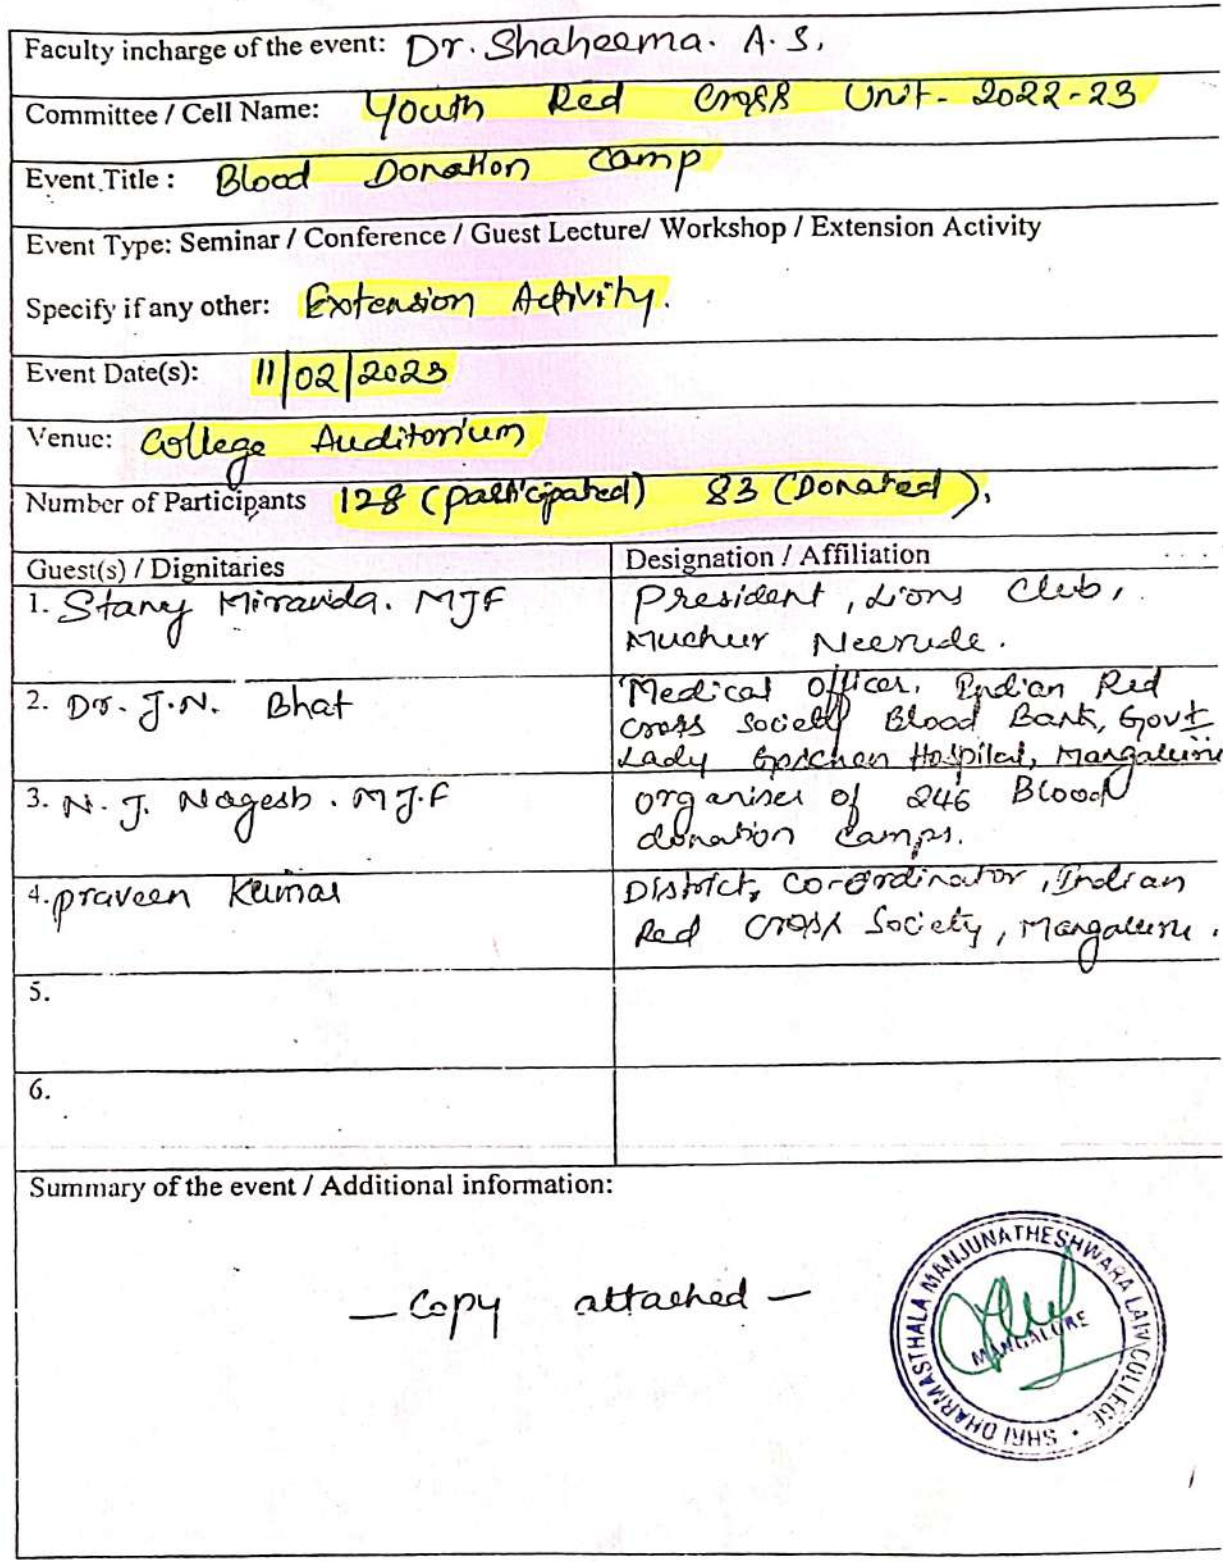 Faculty incharge of the event: Dr. Shaheema. A. S.
Committee / Cell Name: Youth Red Cross Unit - 2022-23
Event Title : Blood Donation Camp
Event Type: Seminar / Conference / Guest Lecture/ Workshop / Extension Activity
Specify if any other: Extension Activity.
Event Date(s): 11/02/2023
Venue: College Auditorium
Number of Participants 128 (participated) 83 (Donated).
Guest(s) / Dignitaries Designation / Affiliation
1. Stany Miranda. MJF President, Lions Club,
Muchur Neerude.
2. Dr. J.N. Bhat Medical Officer, Indian Red
Cross Society Blood Bank, Govt
Lady Goschen Hospital, Mangaluru
3. N. J. Nagesh. MJ.F organiser of 246 Blood
donation Camps.
4. praveen Kumar District, Co-ordinator, Indian
Red Cross Society, Mangaluru.
5.
6.
Summary of the event / Additional information:
— Copy attached —
SHRI DHARMASTHALA MANJUNATHESHWARA LAW COLLEGE
MANGALORE